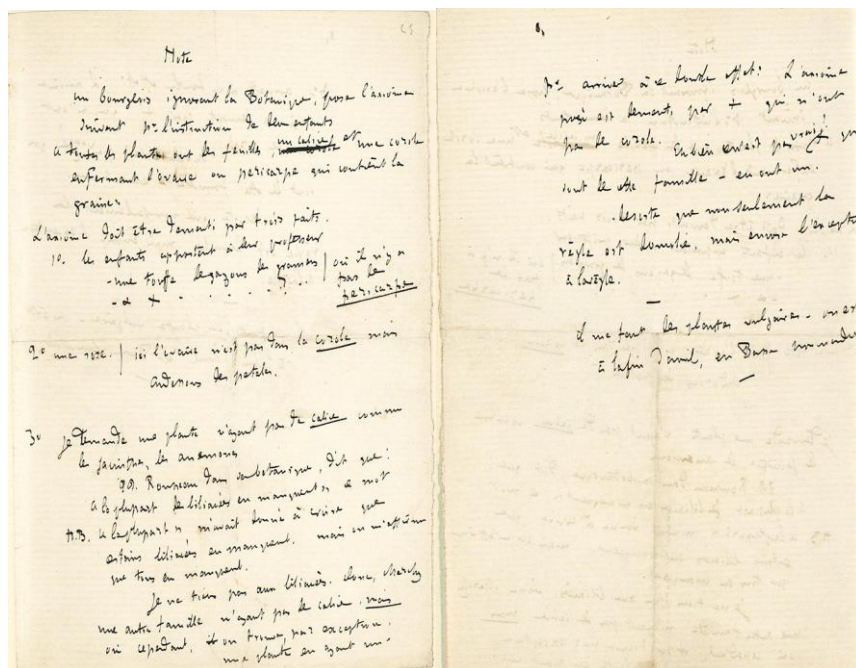 25
Note
un bourgeois ignorant la Botanique, pose l'axiome
suivant pr l'instruction de deux enfants
« toutes les plantes ont des feuilles, un calice et une corole
enfermant l'ovaire ou pericarpe qui contient la
graine »
L'axiome doit être démenti par trois faits.
1o. les enfants apportent à leur professeur
- une touffe de gazons de graminées | où il n'y a
pas de
pericarpe
2o une rose. | ici l'ovaire n'est pas dans la corole mais
au dessous des petales.
3o je demande une plante n'ayant pas de calice comme
la jacinthe, les anemones
J.J. Rousseau dans sa botanique, dit que :
« la plupart des liliacées en manquent » ce mot
N.B. « la plupart » m'avait donné à croire que
certains liliacées en manquent. mais on m'affirme
que tous en manquent.
Je ne tiens pas aux liliacées. Donc, cherchez
une autre famille n'ayant pas de calice, mais
où cependant, il se trouve, par exception,
une plante en ayant un -
pr arriver à ce double effet : L'axiome
posé est dementi, par + qui n'ont
pas de corole. Eh bien ce n'est pas vrai!
sont de cette famille - en ont un.
De sorte que non seulement la
règle est démolie, mais encore l'exception
à la règle.
il me faut des plantes vulgaires - on est
à la fin d'avril, en Basse normandie